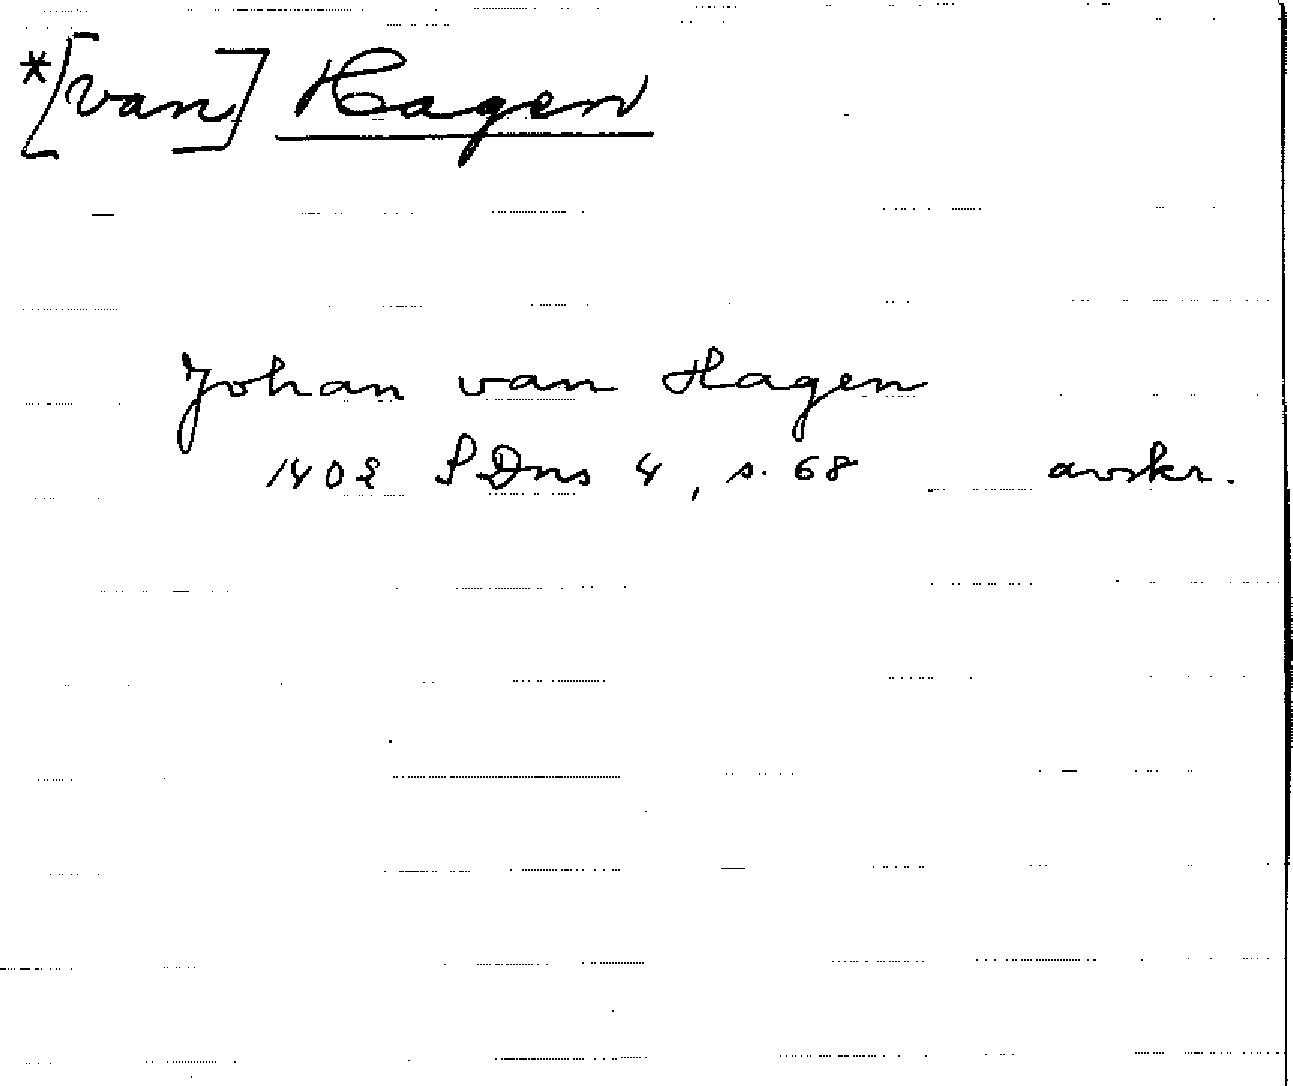 *[van] Hagen
Johan van Hagen
1402 SDns 4, s. 68 avskr.